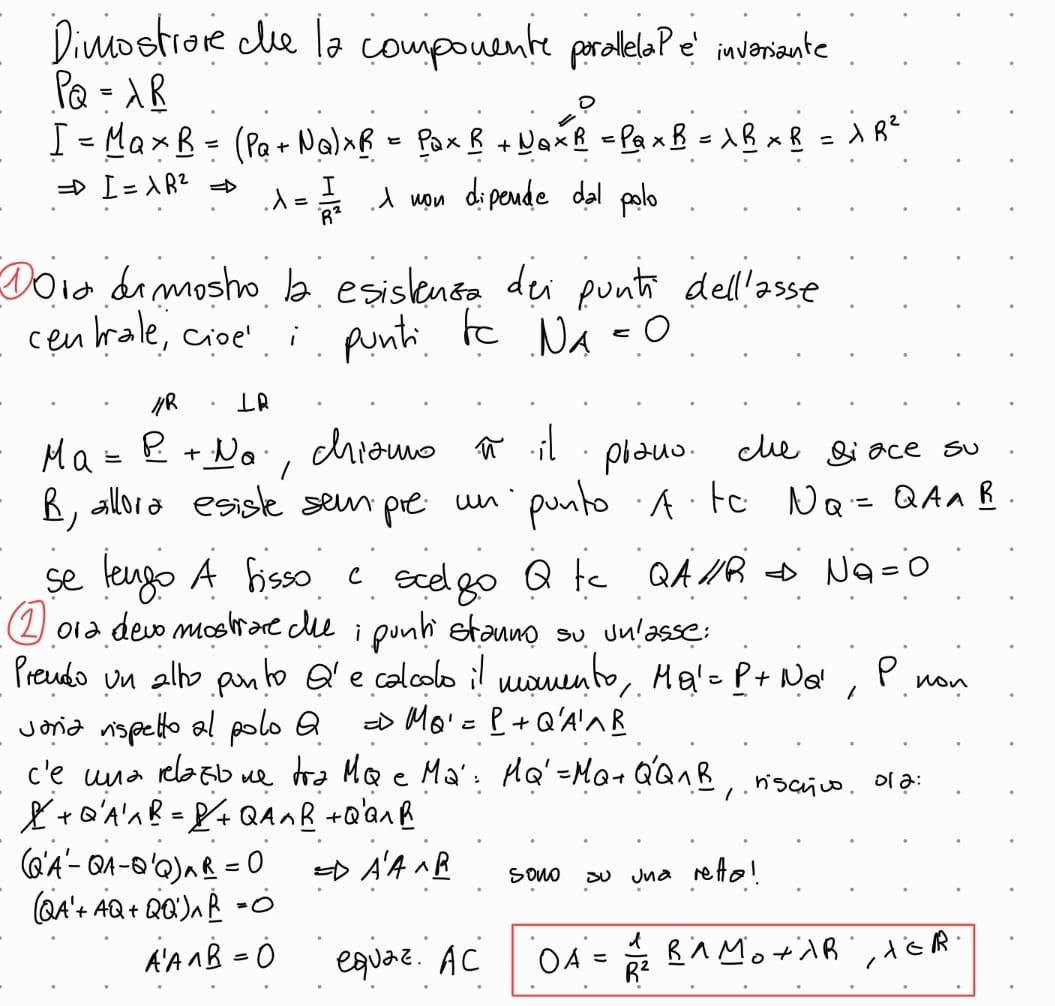 Dimostrare che la componente parallela P e' invariante
PQ = λR
I = MQ × R = (PQ + NQ) × R = PQ × R + NQ × R = PQ × R = λR × R = λR²
0
⇒ I = λR² ⇒ λ = I/R² λ non dipende dal polo
① Ora dimostro la esistenza dei punti dell'asse
centrale, cioe' i punti tc NA = 0
//R ⊥R
MQ = P + NQ, chiamo π il piano che giace su
R, allora esiste sempre un punto A tc NQ = QA ∧ R
se tengo A fisso e scelgo Q tc QA // R ⇒ NQ = 0
② ora devo mostrare che i punti stanno su un'asse:
Prendo un altro punto Q' e calcolo il momento, MQ' = P + NQ', P non
varia rispetto al polo Q ⇒ MQ' = P + Q'A' ∧ R
c'e una relazione tra MQ e MQ': MQ' = MQ + Q'Q ∧ R, riscrivo ora:
P + Q'A' ∧ R = P + QA ∧ R + Q'Q ∧ R
(Q'A' - QA - Q'Q) ∧ R = 0 ⇒ A'A ∧ R sono su una retta!
(QA' + AQ + QQ') ∧ R = 0
A'A ∧ R = 0 equaz. AC OA = 1/R² R ∧ Mo + λR, λ ∈ ℝ